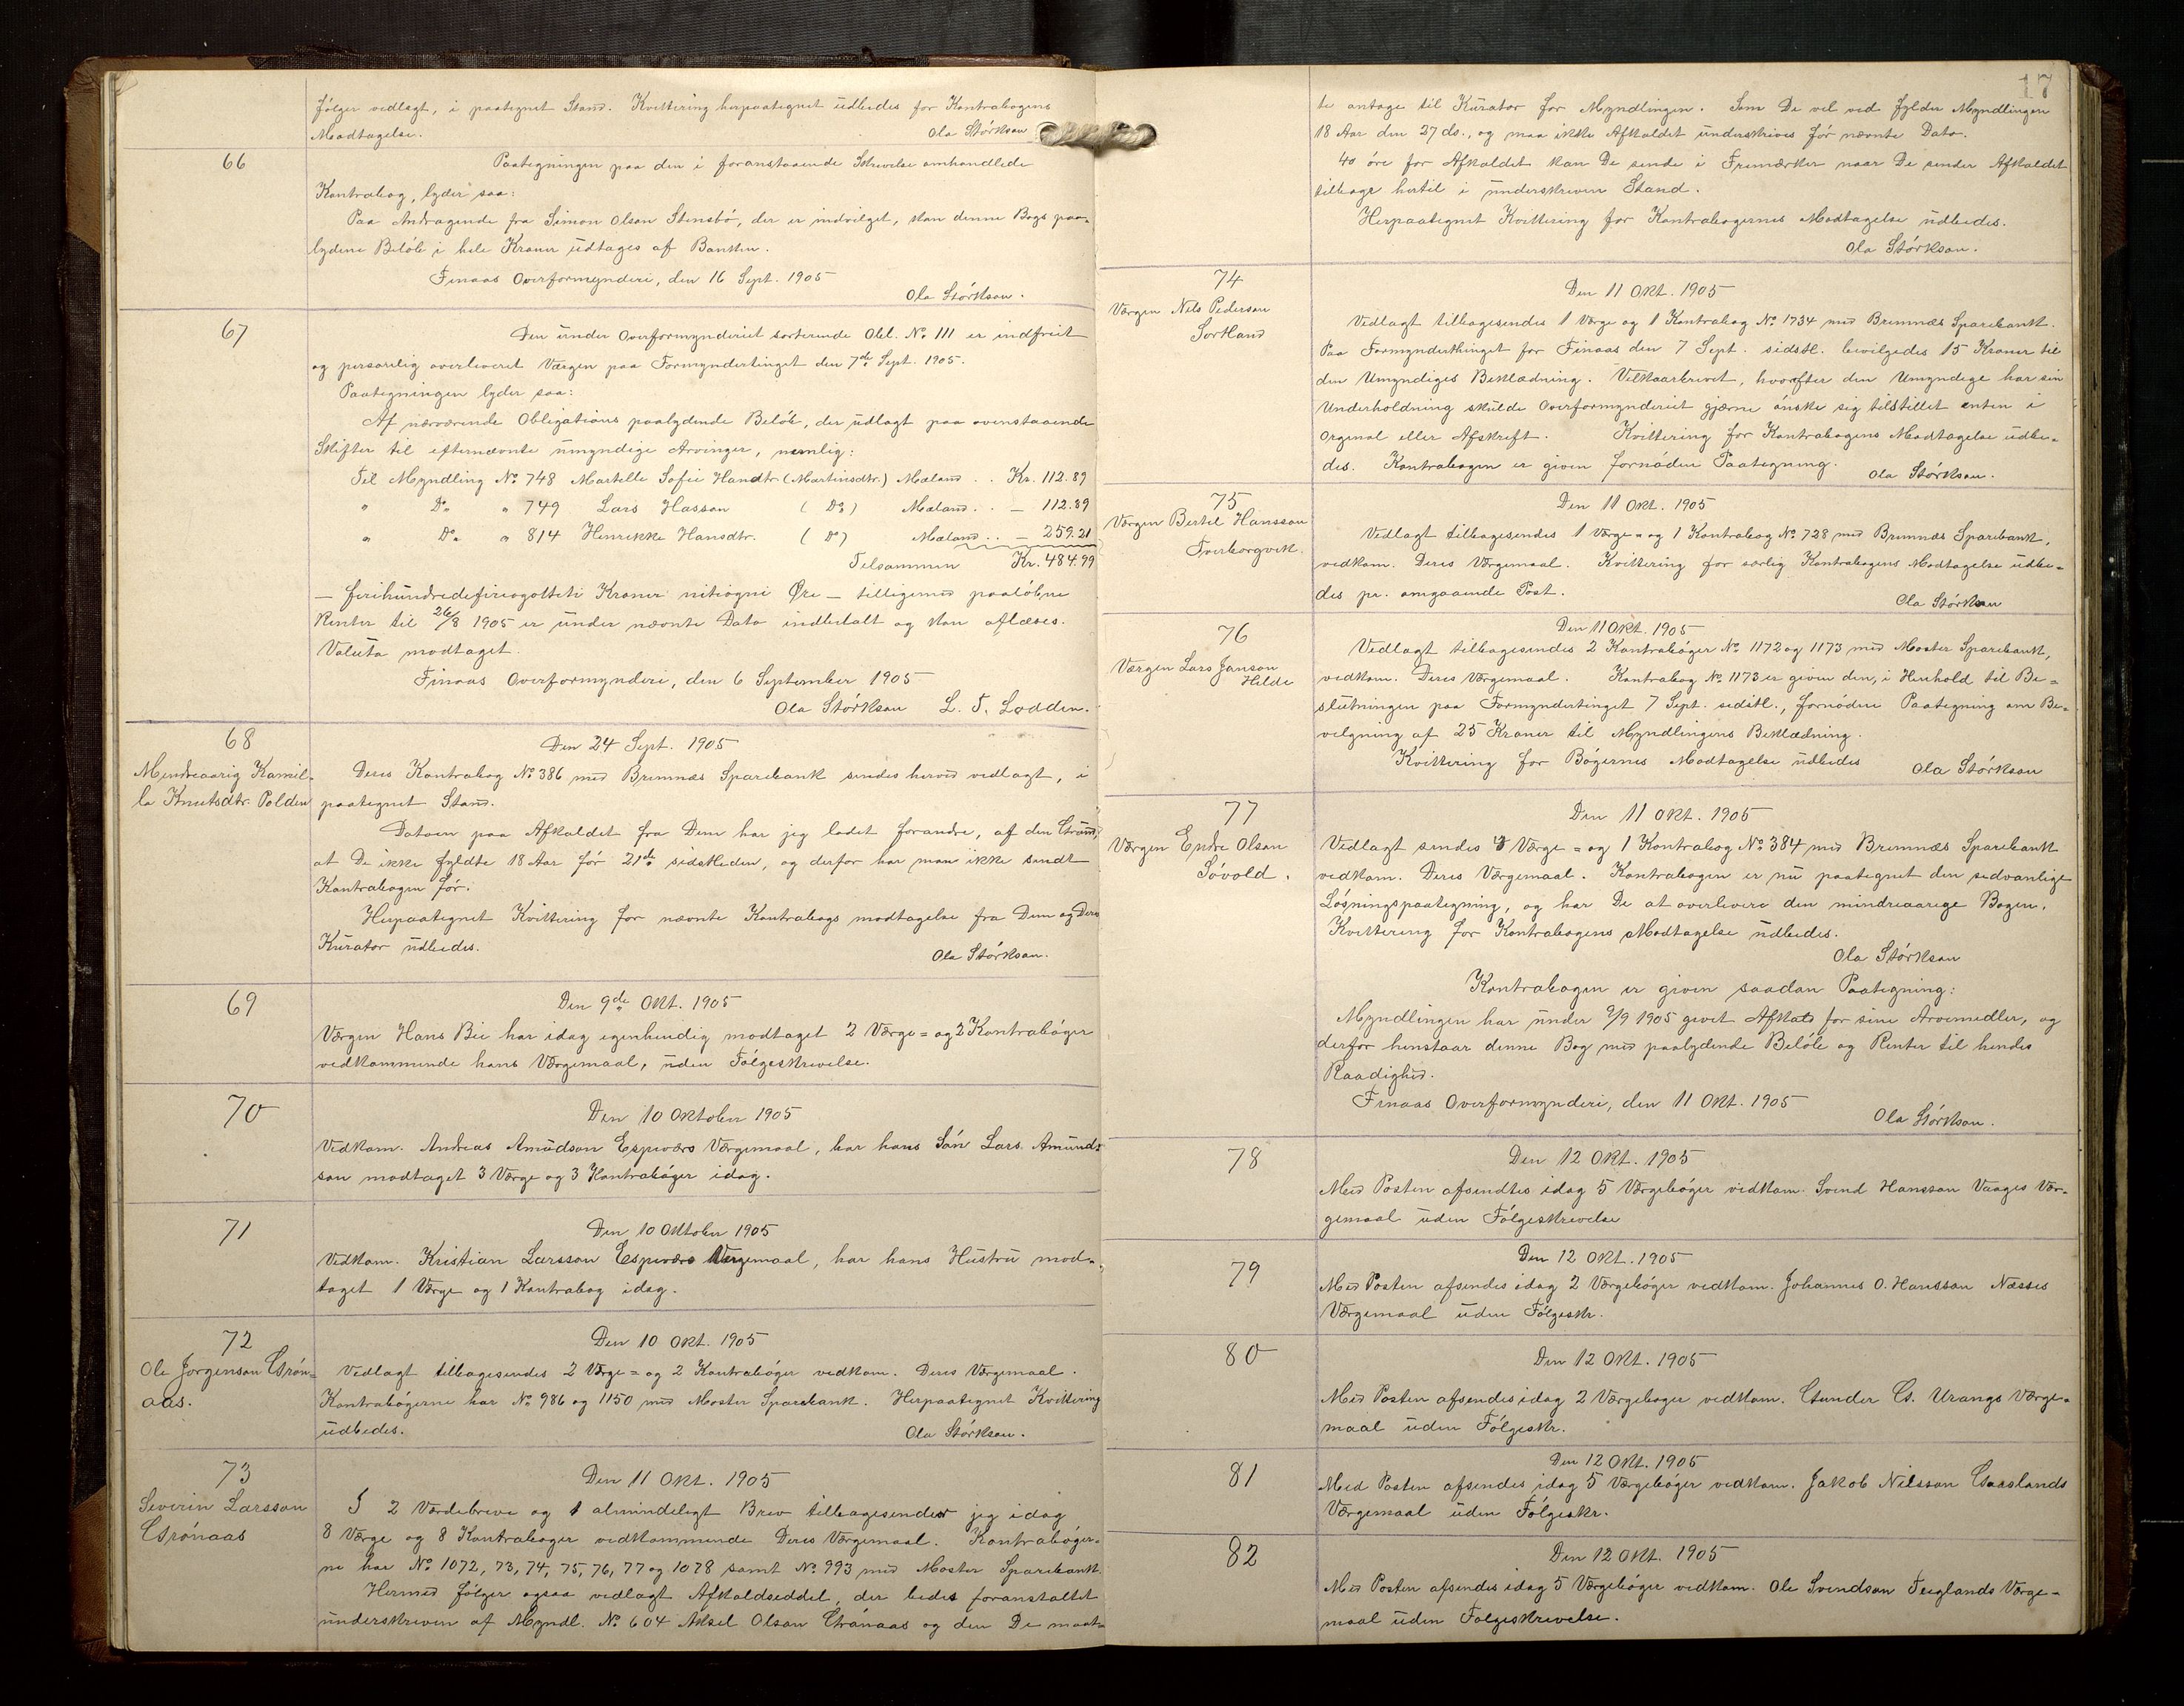 følger vedlagt, i paategnet Stand. Kvittering herpaategnet udbedes for Kontrabogens
Modtagelse. Ola Størkson
66
Paategningen paa den i foranstaaende Skrivelse omhandlede
Kontrabog, lyder saa:
Paa Andragende fra Simon Olson Stensbø, der er indvilget, kan denne Bogs paa-
lydene Beløb i hele Kroner udtages af Banken.
Finaas Overformynderi, den 16 Sept. 1905
Ola Størkson.
67
Den under Overformynderiet sorterende Obl. No 111 er indfriet
og personlig overleveret Værgen paa Formyndertinget den 7de Sept. 1905.
Paategningen lyder saa:
Af nærværende Obligations paalydende Beløb, der udlagt paa ovenstaaende
Skifter til efternævnte umyndige Arvinger, nemlig:
Til Myndling No 748 Martelle Sofie Handtr. (Martinsdtr.) Mæland . . Kr. 112.89
" Do " 749 Lars Hasson ( Do ) Mæland . . — 112.89
" Do " 814 Henrikke Hansdtr. ( Do ) Mæland . . — 259.21
Tilsammen Kr. 484.99
— firihundredefireogotteti Kroner nitiogni Øre — tilligemed paaløbne
Renter til 26/8 1905 er under nævnte Dato indbetalt og kan aflæses.
Valuta modtaget.
Finaas Overformynderi, den 6 September 1905
Ola Størkson L. T. Lodden.
68
Den 24 Sept. 1905
Mindreaarig Kamil-
la Knutsdtr. Polden
Deres Kontrabog No 386 med Bremnæs Sparebank sendes herved vedlagt, i
paategnet Stand.
Datoen paa Afkaldet fra Dem har jeg ladet forandre, af den Grund,
at De ikke fyldte 18 Aar før 21de sidstleden, og derfor har man ikke sendt
Kontrabogen før.
Herpaategnet Kvittering for nævnte Kontrabogs modtagelse fra Dem og Deres
Kurator udbedes.
Ola Størkson.
69
Den 9de Okt. 1905
Værgen Hans Bie har idag egenhendig modtaget 2 Værge= og 2 Kontrabøger
vedkommende hans Værgemaal, uden Følgeskrivelse.
70
Den 10 Oktober 1905
Vedkom. Andreas Amudson Espeværs Værgemaal, har hans Søn Lars Amund=
son modtaget 3 Værge og 3 Kontrabøger idag.
71
Den 10 Oktober 1905
Vedkom. Kristian Larsson Espeværs Værgemaal, har hans Hustru mod-
taget 1 Værge og 1 Kontrabog idag.
72
Den 10 Okt. 1905
Ole Jørgenson Grøn=
aas.
Vedlagt tilbagesendes 2 Værge= og 2 Kontrabøger vedkom. Deres Værgemaal.
Kontrabøgerne har No 986 og 1150 med Moster Sparebank. Herpaategnet Kvittering
udbedes. Ola Størkson.
73
Den 11 Okt. 1905
Severin Larsson
Grønaas
I 2 Værdebreve og 1 almindeligt Brev tilbagesender jeg idag
8 Værge og 8 Kontrabøger vedkommende Deres Værgemaal. Kontrabøger-
ne har No 1072, 73, 74, 75, 76, 77 og 1078 samt No 993 med Moster Sparebank.
Hermed følger ogsaa vedlagt Afkaldseddel, der bedes foranstaltet
underskreven af Myndl. No 604 Aksel Olson Grønaas og den De maat-
17
te antage til Kurator for Myndlingen. Som De vel ved fylder Myndlingen
18 Aar den 27 ds., og maa ikke Afkaldet underskrives før nævnte Dato.
40 øre for Afkaldet kan De sende i Fremærker naar De sender Afkaldet
tilbage hertil i underskreven Stand.
Herpaategnet Kvittering for Kontrabogernes Modtagelse udbedes.
Ola Størkson.
74
Den 11 Okt. 1905
Værgen Nils Pederson
Sortland
Vedlagt tilbagesendes 1 Værge og 1 Kontrabog No 1734 med Bremnæs Sparebank.
Paa Formynderthinget for Finaas den 7 Sept. sidstl. bevilgedes 15 Kroner til
den Umyndiges Beklædning. Velkaarbrevet, hvorefter den Umyndige har sin
Underholdning skulde Overformynderiet gjærne ønske sig tilstillet enten i
Orginal eller Afskrift. Kvittering for Kontrabogens Modtagelse udbe-
des. Kontrabogen er given fornøden Paategning. Ola Størkson.
75
Den 11 Okt. 1905
Værgen Bertel Hansson
Tverborgvik.
Vedlagt tilbagesendes 1 Værge- og 1 Kontrabog No 728 med Bremnæs Sparebank,
vedkom. Deres Værgemaal. Kvittering for særlig Kontrabogens Modtagelse udbe-
des pr. omgaaende Post.
Ola Størkson
76
Den 11 Okt. 1905
Værgen Lars Janson
Hilde
Vedlagt tilbagesendes 2 Kontrabøger No 1172 og 1173 med Moster Sparebank,
vedkom. Deres Værgemaal. Kontrabog No 1173 er given den, i Henhold til Be=
slutningen paa Formyndertinget 7 Sept. sidstl., fornødne Paategning om Be-
velgning af 25 Kroner til Myndlingens Beklædning.
Kvittering for Bøgernes Modtagelse udbedes Ola Størkson
77
Den 11 Okt. 1905
Værgen Endre Olson
Søvold.
Vedlagt sendes Værge= og 1 Kontrabog No 384 med Bremnæs Sparebank
vedkom. Deres Værgemaal. Kontrabogen er nu paategnet den sedvanlige
Løsningspaategning, og har De at overlevere den mindreaarige Bogen.
Kvittering for Kontrabogens Modtagelse udbedes.
Ola Størkson
Kontrabogen er given saadan Paategning:
Myndlingen har under 9/9 1905 givet Afkald for sine Arvemedler, og
derfor henstaar denne Bog med paalydende Beløb og Renter til hendes
Raadighed.
Finaas Overformynderi, den 11 Okt. 1905
Ola Størkson.
78
Den 12 Okt. 1905
Med Posten afsendtes idag 5 Værgebøger vedkom. Svend Hansson Vaages Vær-
gemaal uden Følgeskrivelse
79
Den 12 Okt. 1905
Med Posten afsendes idag 2 Værgebøger vedkom. Johannes O. Hansson Næsses
Værgemaal uden Følgeskr.
80
Den 12 Okt. 1905
Med Posten afsendes idag 2 Værgebøger vedkom. Gunder G. Urangs Værge-
maal uden Følgeskr.
81
Den 12 Okt. 1905
Med Posten afsendes idag 5 Værgebøger vedkom. Jakob Nilsson Gaaslands
Værgemaal uden Følgeskr.
82
Den 12 Okt. 1905
Med Posten afsendes idag 5 Værgebøger vedkom. Ole Svendson Teiglands Værge-
maal uden Følgeskrivelse.